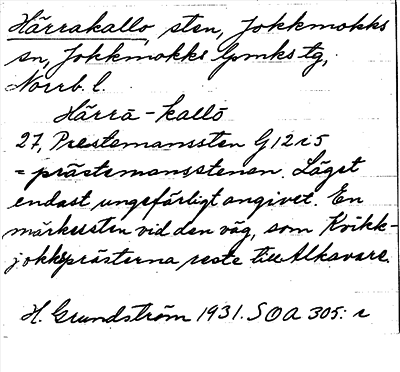 Härrakallo, sten, Jokkmokks
sn, Jokkmokks lpmks tg,
Norrb. l.
Härrā-kallō
27, Prestemanssten G 12 i 5
= prästemansstenen. Läget
endast ungefärligt angivet. En
märkessten vid den väg, som Kvikk-
jokksprästerna reste till Alkavare.
H. Grundström 1931. SOA 305: c